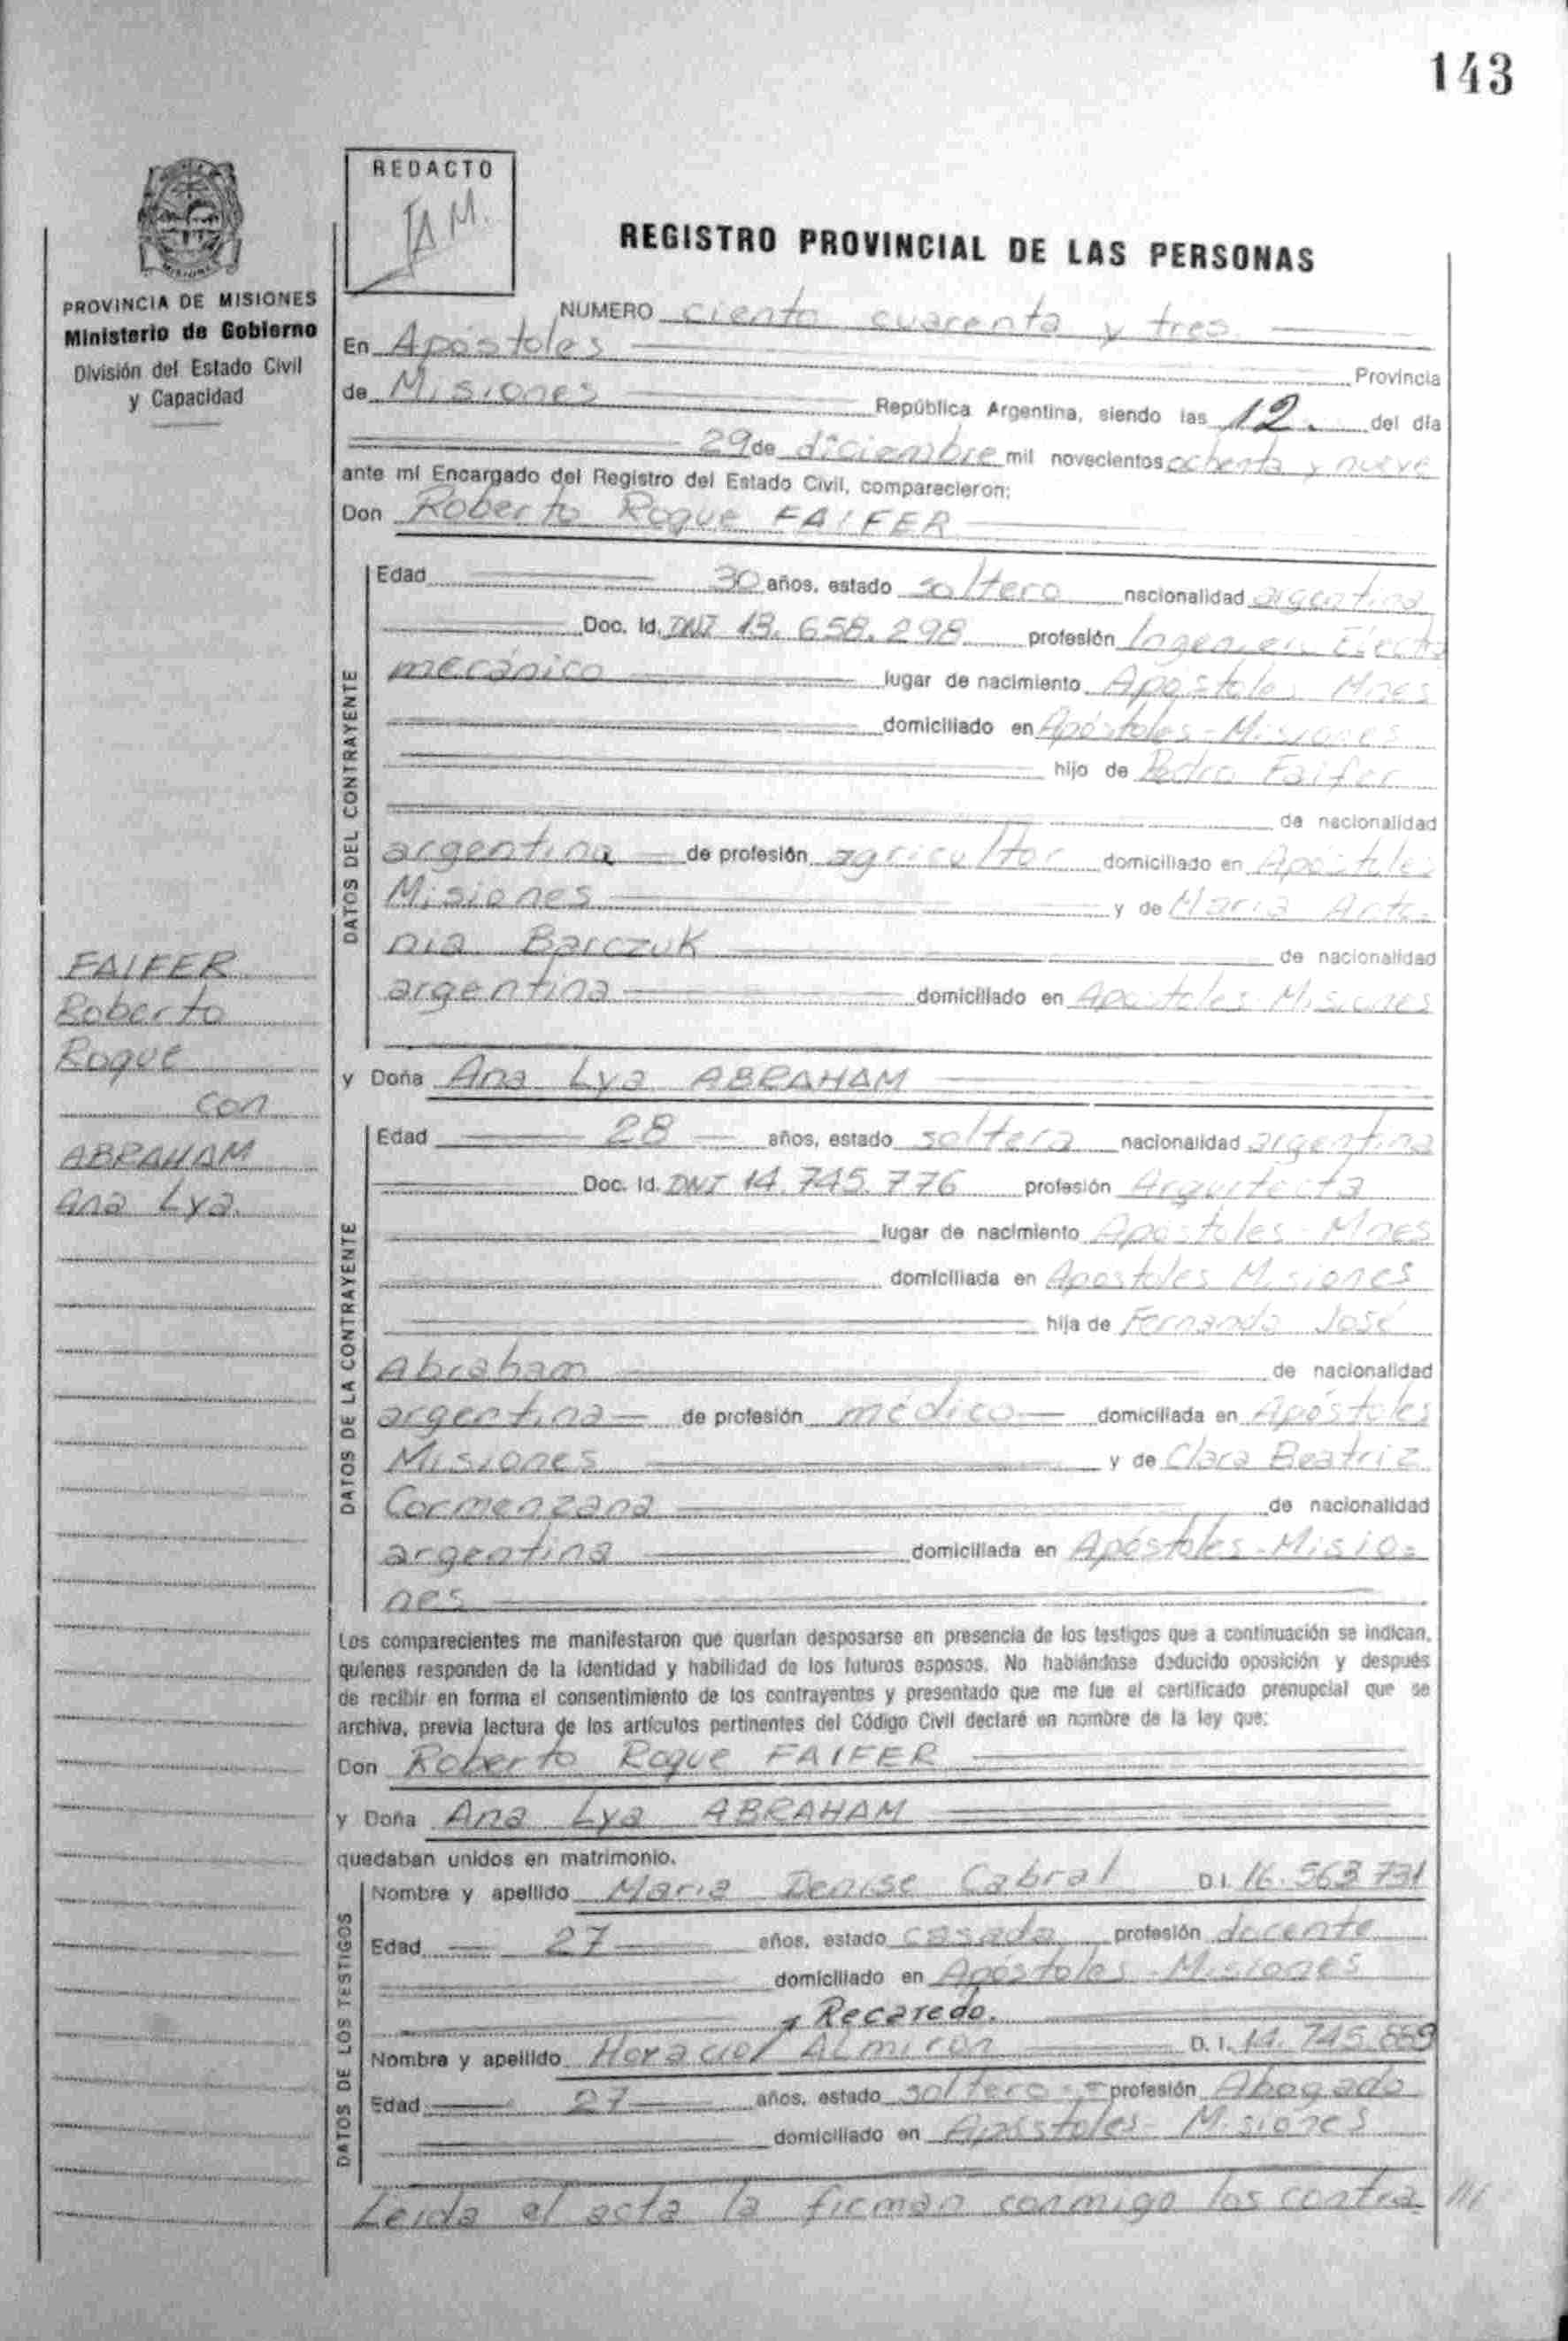 143
REDACTO
REGISTRO PROVINCIAL DE LAS PERSONAS
PROVINCIA DE MISIONES
Ministerio de Gobierno
División del Estado Civil
y Capacidad
NUMERO ciento cuarenta y tres
En Apóstoles
Provincia
de Misiones República Argentina, siendo las 12. del día
29 de diciembre mil novecientos ochenta y nueve
ante mí Encargado del Registro del Estado Civil, comparecieron:
Don Roberto Roque FAIFER
DATOS DEL CONTRAYENTE
Edad 30 años, estado soltero nacionalidad argentina
Doc. Id. DNI 13.658.298 profesión Ingeniero Electro
mecánico lugar de nacimiento Apóstoles Mnes
domiciliado en Apóstoles - Misiones
hijo de Pedro Faifer
de nacionalidad
argentina de profesión agricultor domiciliado en Apóstoles
Misiones y de Maria Anto-
nia Barczuk de nacionalidad
argentina domiciliado en Apostoles Misiones
FAIFER
Roberto
Roque
con
ABRAHAM
Ana Lya.
y Doña Ana Lya ABRAHAM
DATOS DE LA CONTRAYENTE
Edad 28 años, estado soltera nacionalidad argentina
Doc. Id. DNI 14.745.776 profesión Arquitecta
lugar de nacimiento Apóstoles - Mnes
domiciliada en Apostoles Misiones
hija de Fernando José
Abraham de nacionalidad
argentina de profesión médico domiciliada en Apóstoles
Misiones y de Clara Beatriz
Cormenzana de nacionalidad
argentina domiciliada en Apóstoles - Misio=
nes
Los comparecientes me manifestaron que querían desposarse en presencia de los testigos que a continuación se indican,
quienes responden de la identidad y habilidad de los futuros esposos. No habiéndose deducido oposición y después
de recibir en forma el consentimiento de los contrayentes y presentado que me fue el certificado prenupcial que se
archiva, previa lectura de los artículos pertinentes del Código Civil declaré en nombre de la ley que:
Don Roberto Roque FAIFER
y Doña Ana Lya ABRAHAM
quedaban unidos en matrimonio.
DATOS DE LOS TESTIGOS
Nombre y apellido Maria Denise Cabral D.I. 16.563.731
Edad 27 años, estado casada profesión docente
domiciliado en Apóstoles - Misiones
Recaredo.
Nombre y apellido Horacio Almiron D.I. 14.745.889
Edad 27 años, estado soltero profesión Abogado
domiciliado en Apóstoles - Misiones
Leida el acta la firman conmigo los contra ///